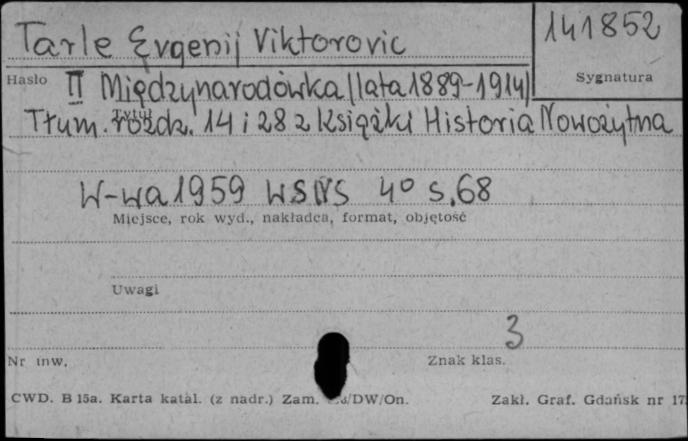 Tarle Evgenij Viktorovic
141852
Hasło
Sygnatura
II Międzynarodówka (lata 1889-1914)
Tytuł
Tłum. rozdz. 14 i 28 z książki Historia Nowożytna
W-wa 1959 WSNS 4° s. 68
Miejsce, rok wyd., nakładca, format, objętość
Uwagi
3
Nr inw.
Znak klas.
CWD. B 15a. Karta katal. (z nadr.) Zam. /DW/On.
Zakł. Graf. Gdańsk nr 17